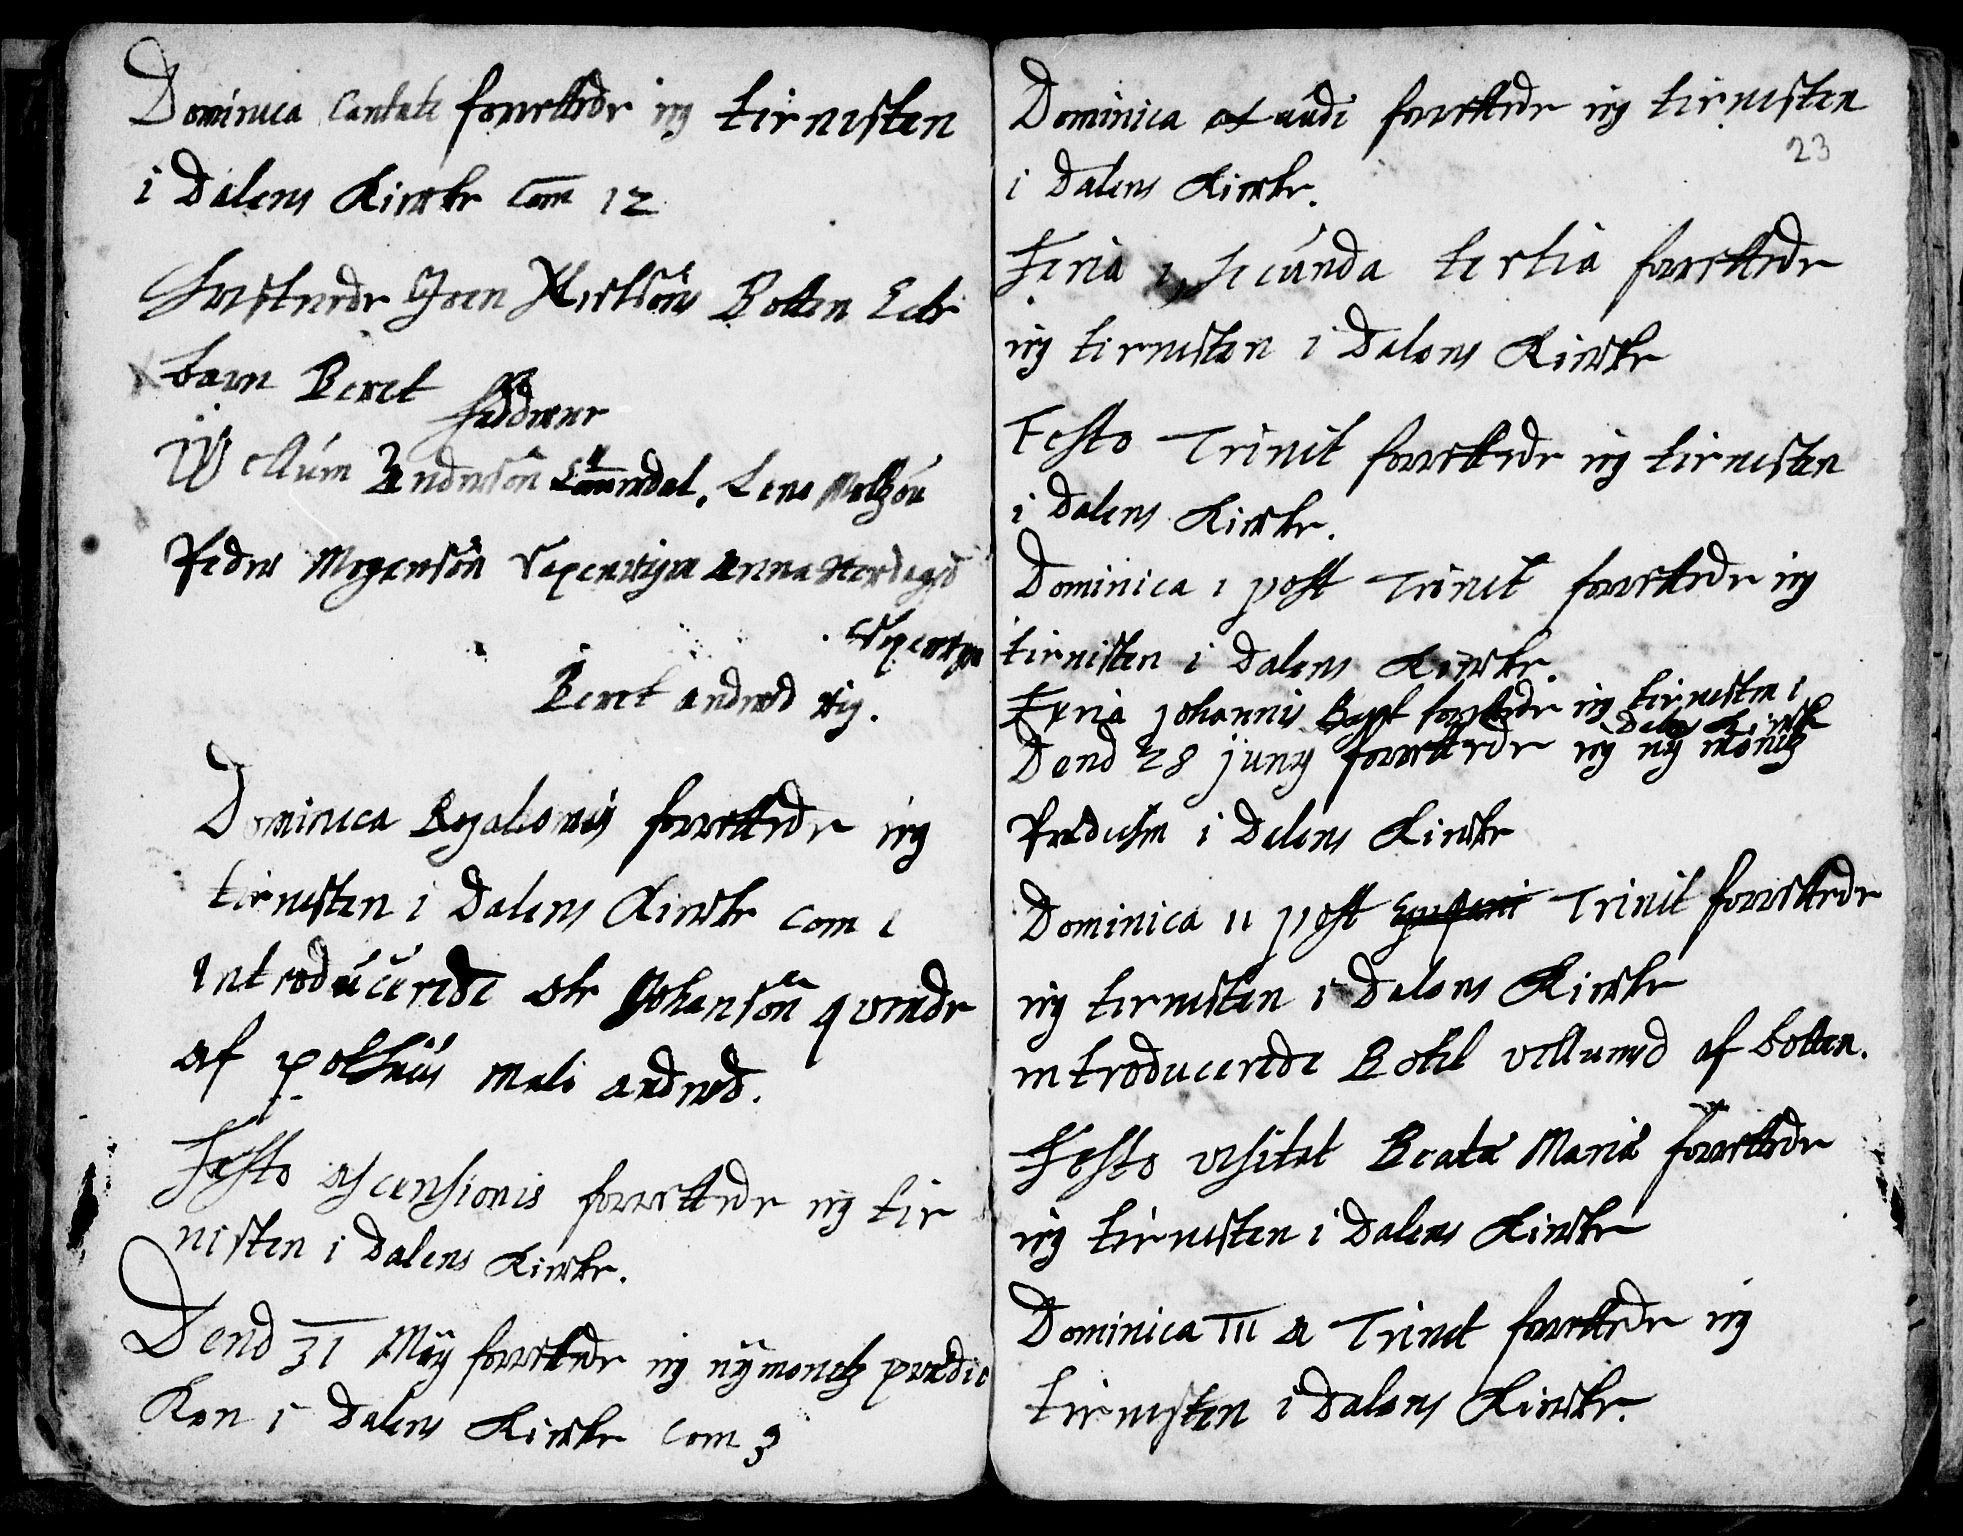 Dominica Cantate forrettede ieg tienisten
i Dalens Kircke Com 12
Christnede Joen Nielsöns Botten Ecte
barn Beret
faddrene
Willum Andersön Lene
Peder Mogensön Anna
Beret andersd
Dominica Rogationis forrettede ieg
tienisten i Dalens Kircke com 1
Introducerede Ole Johansön quinde
af polhus mali andersd.
Festo ascensionis forrettede ieg tie
nisten i Dalens Kircke.
Dend 31 Maij forrettede ieg nÿmonetz prædic
Ken i Dalens Kircke com 3
Dominica exaudi forrettede ieg tienisten
23
i Dalens Kircke.
Feria 1, secunda tertia forrettede
ieg tienisten i Dalens Kircke
Festo Trinit forrettede ieg tienisten
i Dalens Kircke.
Dominica 1 post Trinit forrettede ieg
tienisten i Dalens Kircke.
Feria Johannis Bapt forrettede ieg tienisten i
Dalens Kircke
Dend 28 junij forrettede ieg nÿ monitz
Prædicken i Dalens Kircke
Dominica 11 post Epiphani Trinit forrettede
ieg tienisten i Dalens Kircke
introducerede Botel villumsd af botten.
Festo visitat Beatæ Mariæ forrettede
ieg tienisten i Dalens Kircke
Dominica III a Trinit forrettede ieg
tienisten i Dalens Kircke.